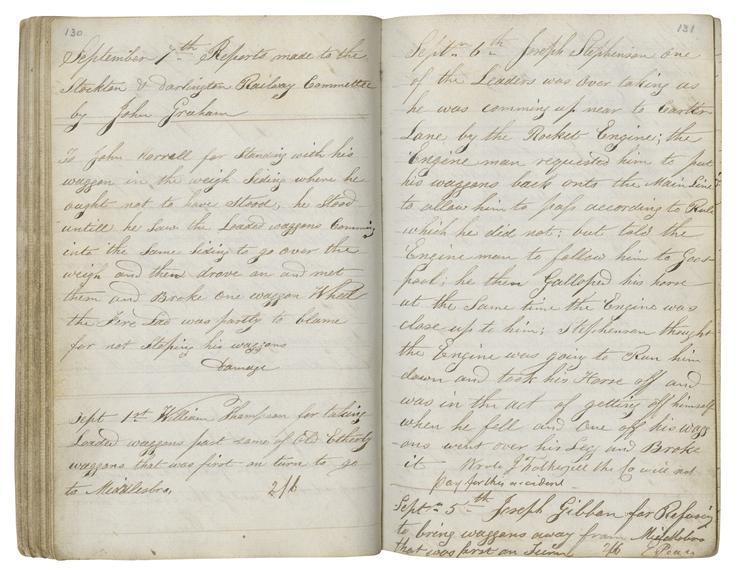 130
September 7th Reports made to the
Stockton & Darlington Railway Committee
by John Graham
To John Horrell for Standing with his
waggon in the weigh Siding where he
ought not to have Stood, he Stood
untill he Saw the Loaded waggons Comming
into the Same Siding to go over the
weigh and then drove on and met
them and Broke one waggon Wheel
the Fore Lad was partly to blame
for not Stoping his waggons
Damage
Sept 1st William Thompson for taking
Loaded waggons past some of Old Etherly
waggons that was first on turn to go
to Middlesbro. 2/6
131
Sept. 6th Joseph Stephenson one
of the Leaders was over taking as
he was comming up near to
Lane by the Rocket Engine; the
Engine man requested him to put
his waggons back onto the Main Line
to allow him to pass according to Rule
which he did not; but told the
Engine man to follow him to Goos
pool; he then Galloped his horse
at the Same time the Engine was
close up to him; Stephenson thought
the Engine was going to Run him
down and took his Horse off and
was in the act of getting off himself
when he fell and One off his wagg
ons went over his Leg and Broke
it Wrote J Fothergill the Co will not
pay for this accident
Sept. 5th Joseph Gibbon for Refusing
to bring waggons away from Middlesbro
that was first on Turn 2/6